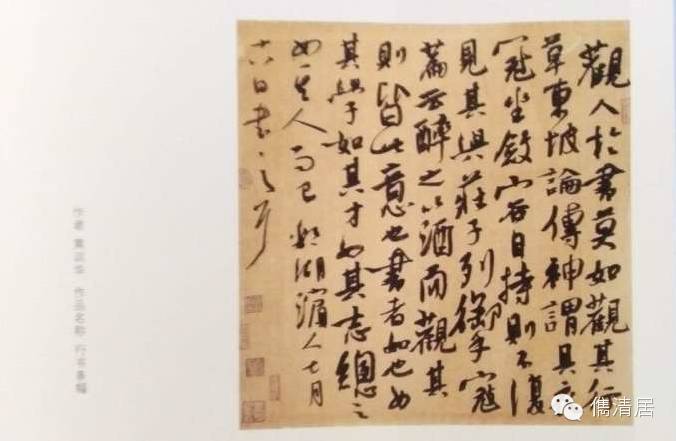 觀人於書莫如觀其行
草東坡論傳神謂具衣
冠坐斂容自持則不復
見其與莊子列御寇
篇云醉之以酒而觀其
則皆此意也書者如也如
其學如其才如其志總之
如其人而已 湖濱人七月
六日書
作者 作品名称 行书条幅
儁清居